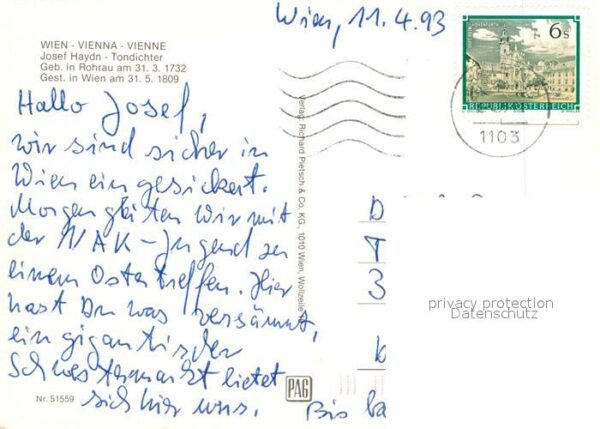 Wien, 11.4.93
WIEN - VIENNA - VIENNE
Josef Haydn - Tondichter
Geb. in Rohrau am 31. 3. 1732
Gest. in Wien am 31. 5. 1809
Hallo Josef,
wir sind sicher in
Wien eingesickert.
Morgen gleiten wir mit
der NAK-Jugend zu
einem Ostertreffen. Hier
hast Du was versäumt,
ein gigantischer
Schwestermarkt bietet
sich hier uns.
Nr. 51559
Verlag: Richard Pietsch & Co. KG., 1010 Wien, Wollzeile
PAG
Bis ba
6s
REPUBLIK ÖSTERREICH
1103
D
T
3
privacy protection
Datenschutz